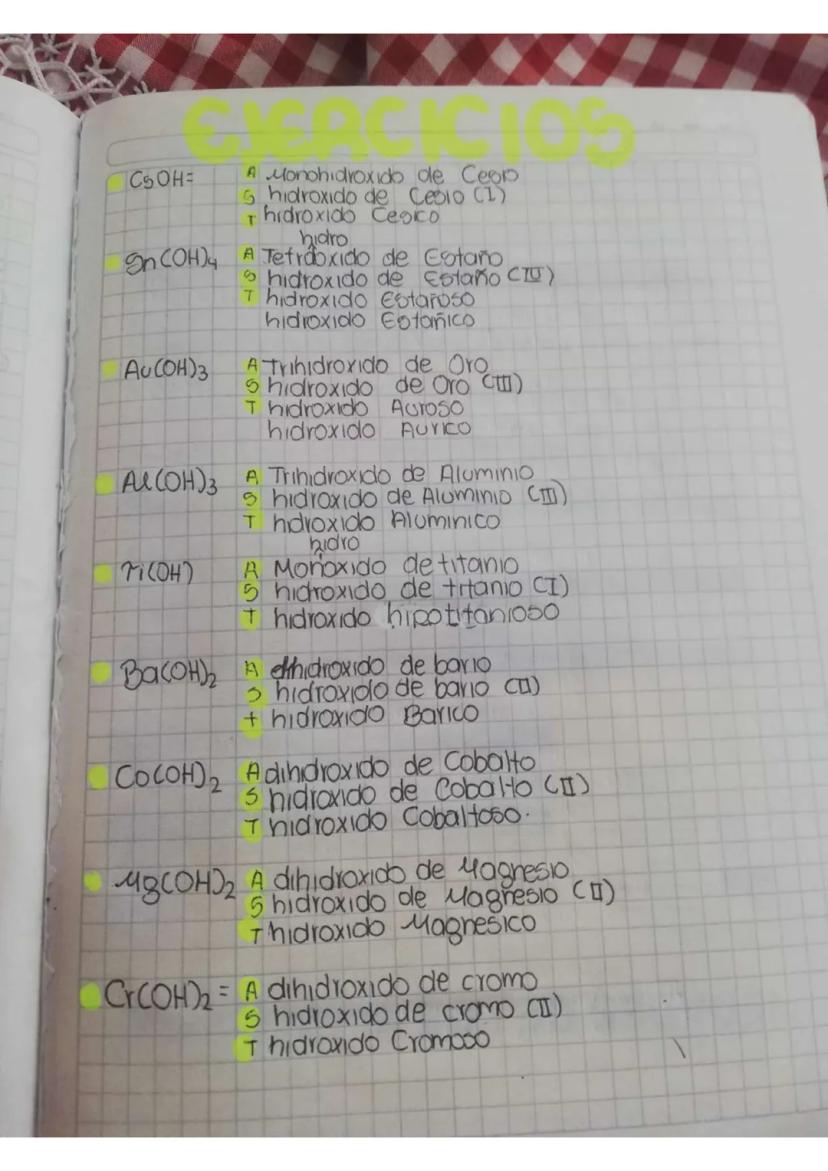 EJERCICIOS
CsOH= A Monohidroxido de Cesio
S hidroxido de Cesio (I)
T hidroxido Cesico
hidro
Sn(OH)4 A Tetraoxido de Estaño
S hidroxido de Estaño (IV)
T hidroxido Estañoso
hidroxido Estañico
Au(OH)3 A Trihidroxido de Oro
S hidroxido de Oro (III)
T hidroxido Auroso
hidroxido Aurico
Al(OH)3 A Trihidroxido de Aluminio
S hidroxido de Aluminio (III)
T hdroxido Aluminico
hidro
Ti(OH) A Monoxido de titanio
S hidroxido de titanio (I)
T hidroxido hipotitanioso
Ba(OH)2 A dihidroxido de bario
S hidroxido de bario (II)
+ hidroxido Barico
Co(OH)2 A dihidroxido de Cobalto
S hidroxido de Cobalto (II)
T hidroxido Cobaltoso.
Mg(OH)2 A dihidroxido de Magnesio
S hidroxido de Magnesio (II)
T hidroxido Magnesico
Cr(OH)2= A dihidroxido de cromo
S hidroxido de cromo (II)
T hidroxido Cromoso